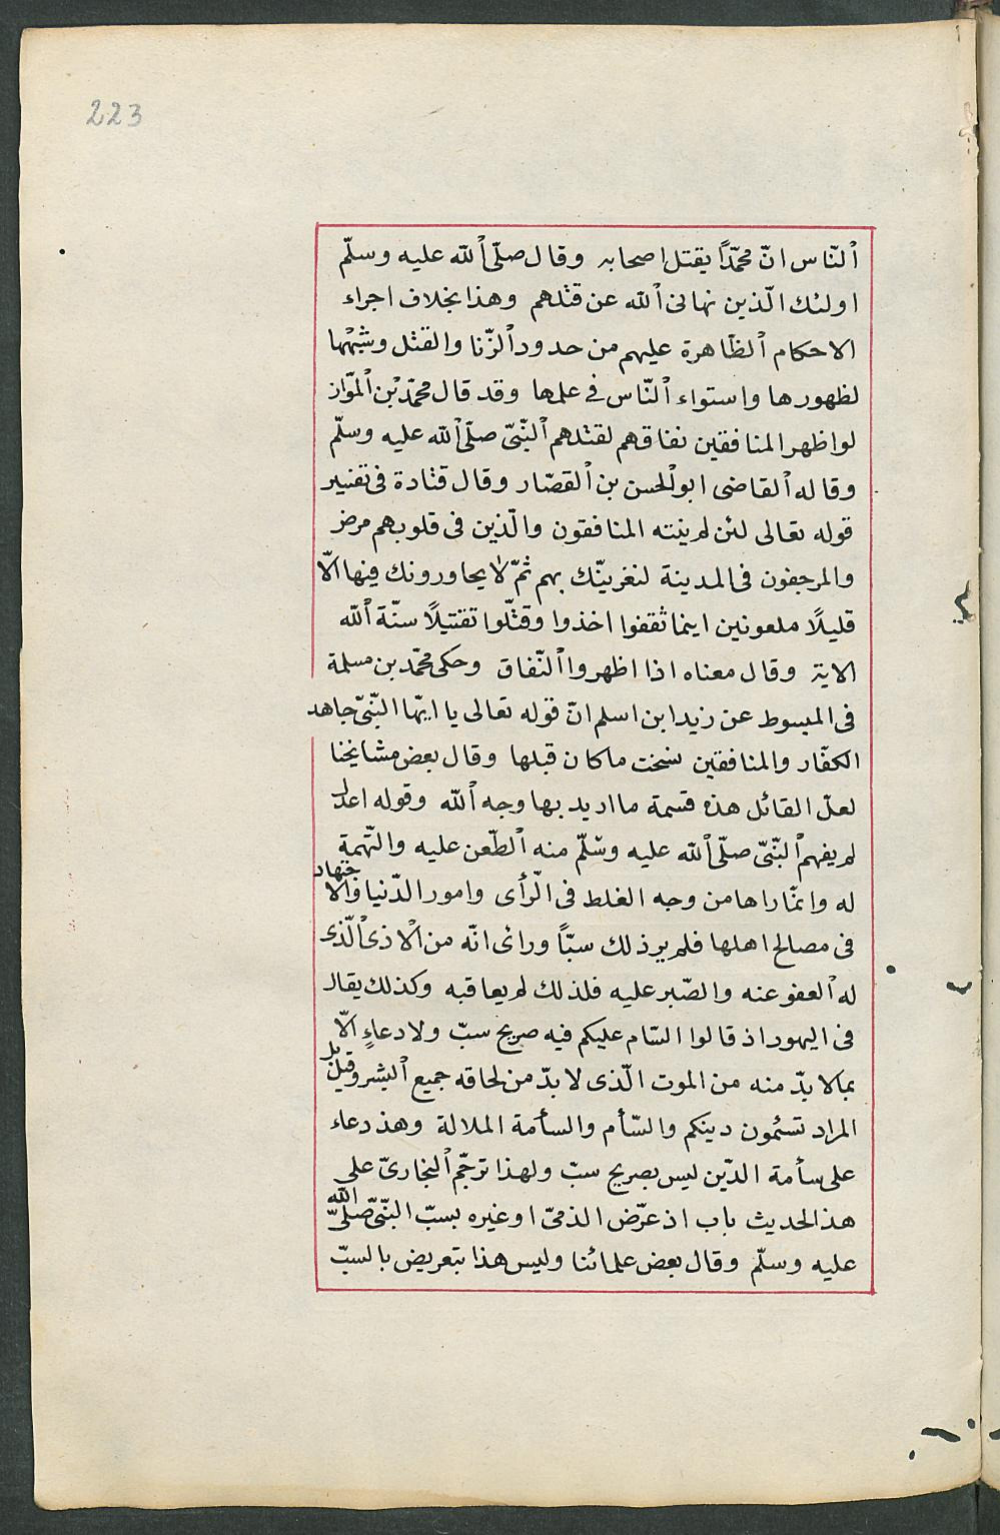 223
ٱلنّاس انّ محمّدًا يقتل اصحابه وقال صلّى ٱلله عليه وسلّم
اولئك الّذين نهانى ٱلله عن قتلهم وهذا بخلاف اجراء
الاحكام ٱلظّاهرة عليهم من حدود ٱلزّنا والقتل وشبهها
لظهورها واستواء ٱلنّاس فى علمها وقد قال محمّد بْن ٱلموّاز
لو اظهر المنافقين نفاقهم لقتلهم ٱلنّبىّ صلّى ٱلله عليه وسلّم
وقاله ٱلقاضى ابو ٱلحسن بن ٱلقصّار وقال قتادة فى تفسير
قوله تعالى لئن لم ينته المنافقون والّذين فى قلوبهم مرض
والمرجفون فى المدينة لنغرينّك بهم ثمّ لا يجاورونك فيها الّا
قليلًا ملعونين اينما ثقفوا اخذوا وقتّلوا تقتيلًا سنّة ٱلله
الاية وقال معناه اذا اظهروا ٱلنّفاق وحكى محمّد بن مسلمة
فى المبسوط عن زيد ابن اسلم انّ قوله تعالى يا ايّها النّبىّ جاهد
الكفّار والمنافقين نسخت ما كان قبلها وقال بعض مشايخنا
لعلّ القائل هذه قسمة ما اريد بها وجه ٱلله وقوله اعدل
لم يفهم ٱلنّبىّ صلّى ٱلله عليه وسّلّم منه ٱلطّعن عليه والتّهمة
له وانّما راها من وجه الغلط فى الرّأى وامور الدّنيا والاجتهاد
فى مصالح اهلها فلم ير ذلك سبًّا وراى انّه من ٱلاذى ٱلّذى
له ٱلعفو عنه والصّبر عليه فلذلك لم يعاقبه وكذلك يقال
فى اليهود اذ قالوا السّام عليكم فيه صريح سبّ ولا دعاءٍ الّا
بما لا بدّ منه من الموت الّذى لا بدّ من لحاقه جميع ٱلبشر وقيل بل
المراد تسئمون دينكم والسّأم والسأمة الملالة وهذ دعاء
على سأمة الدّين ليس بصريح سبّ ولهذا ترجّم ٱلبخارىّ على
هذ الحديث باب اذ عرّض الذمىّ او غيره بسبّ النّبىّ صلّى الله
عليه وسلّم وقال بعض علمائنا وليس هذا بتعريض بالسبّ